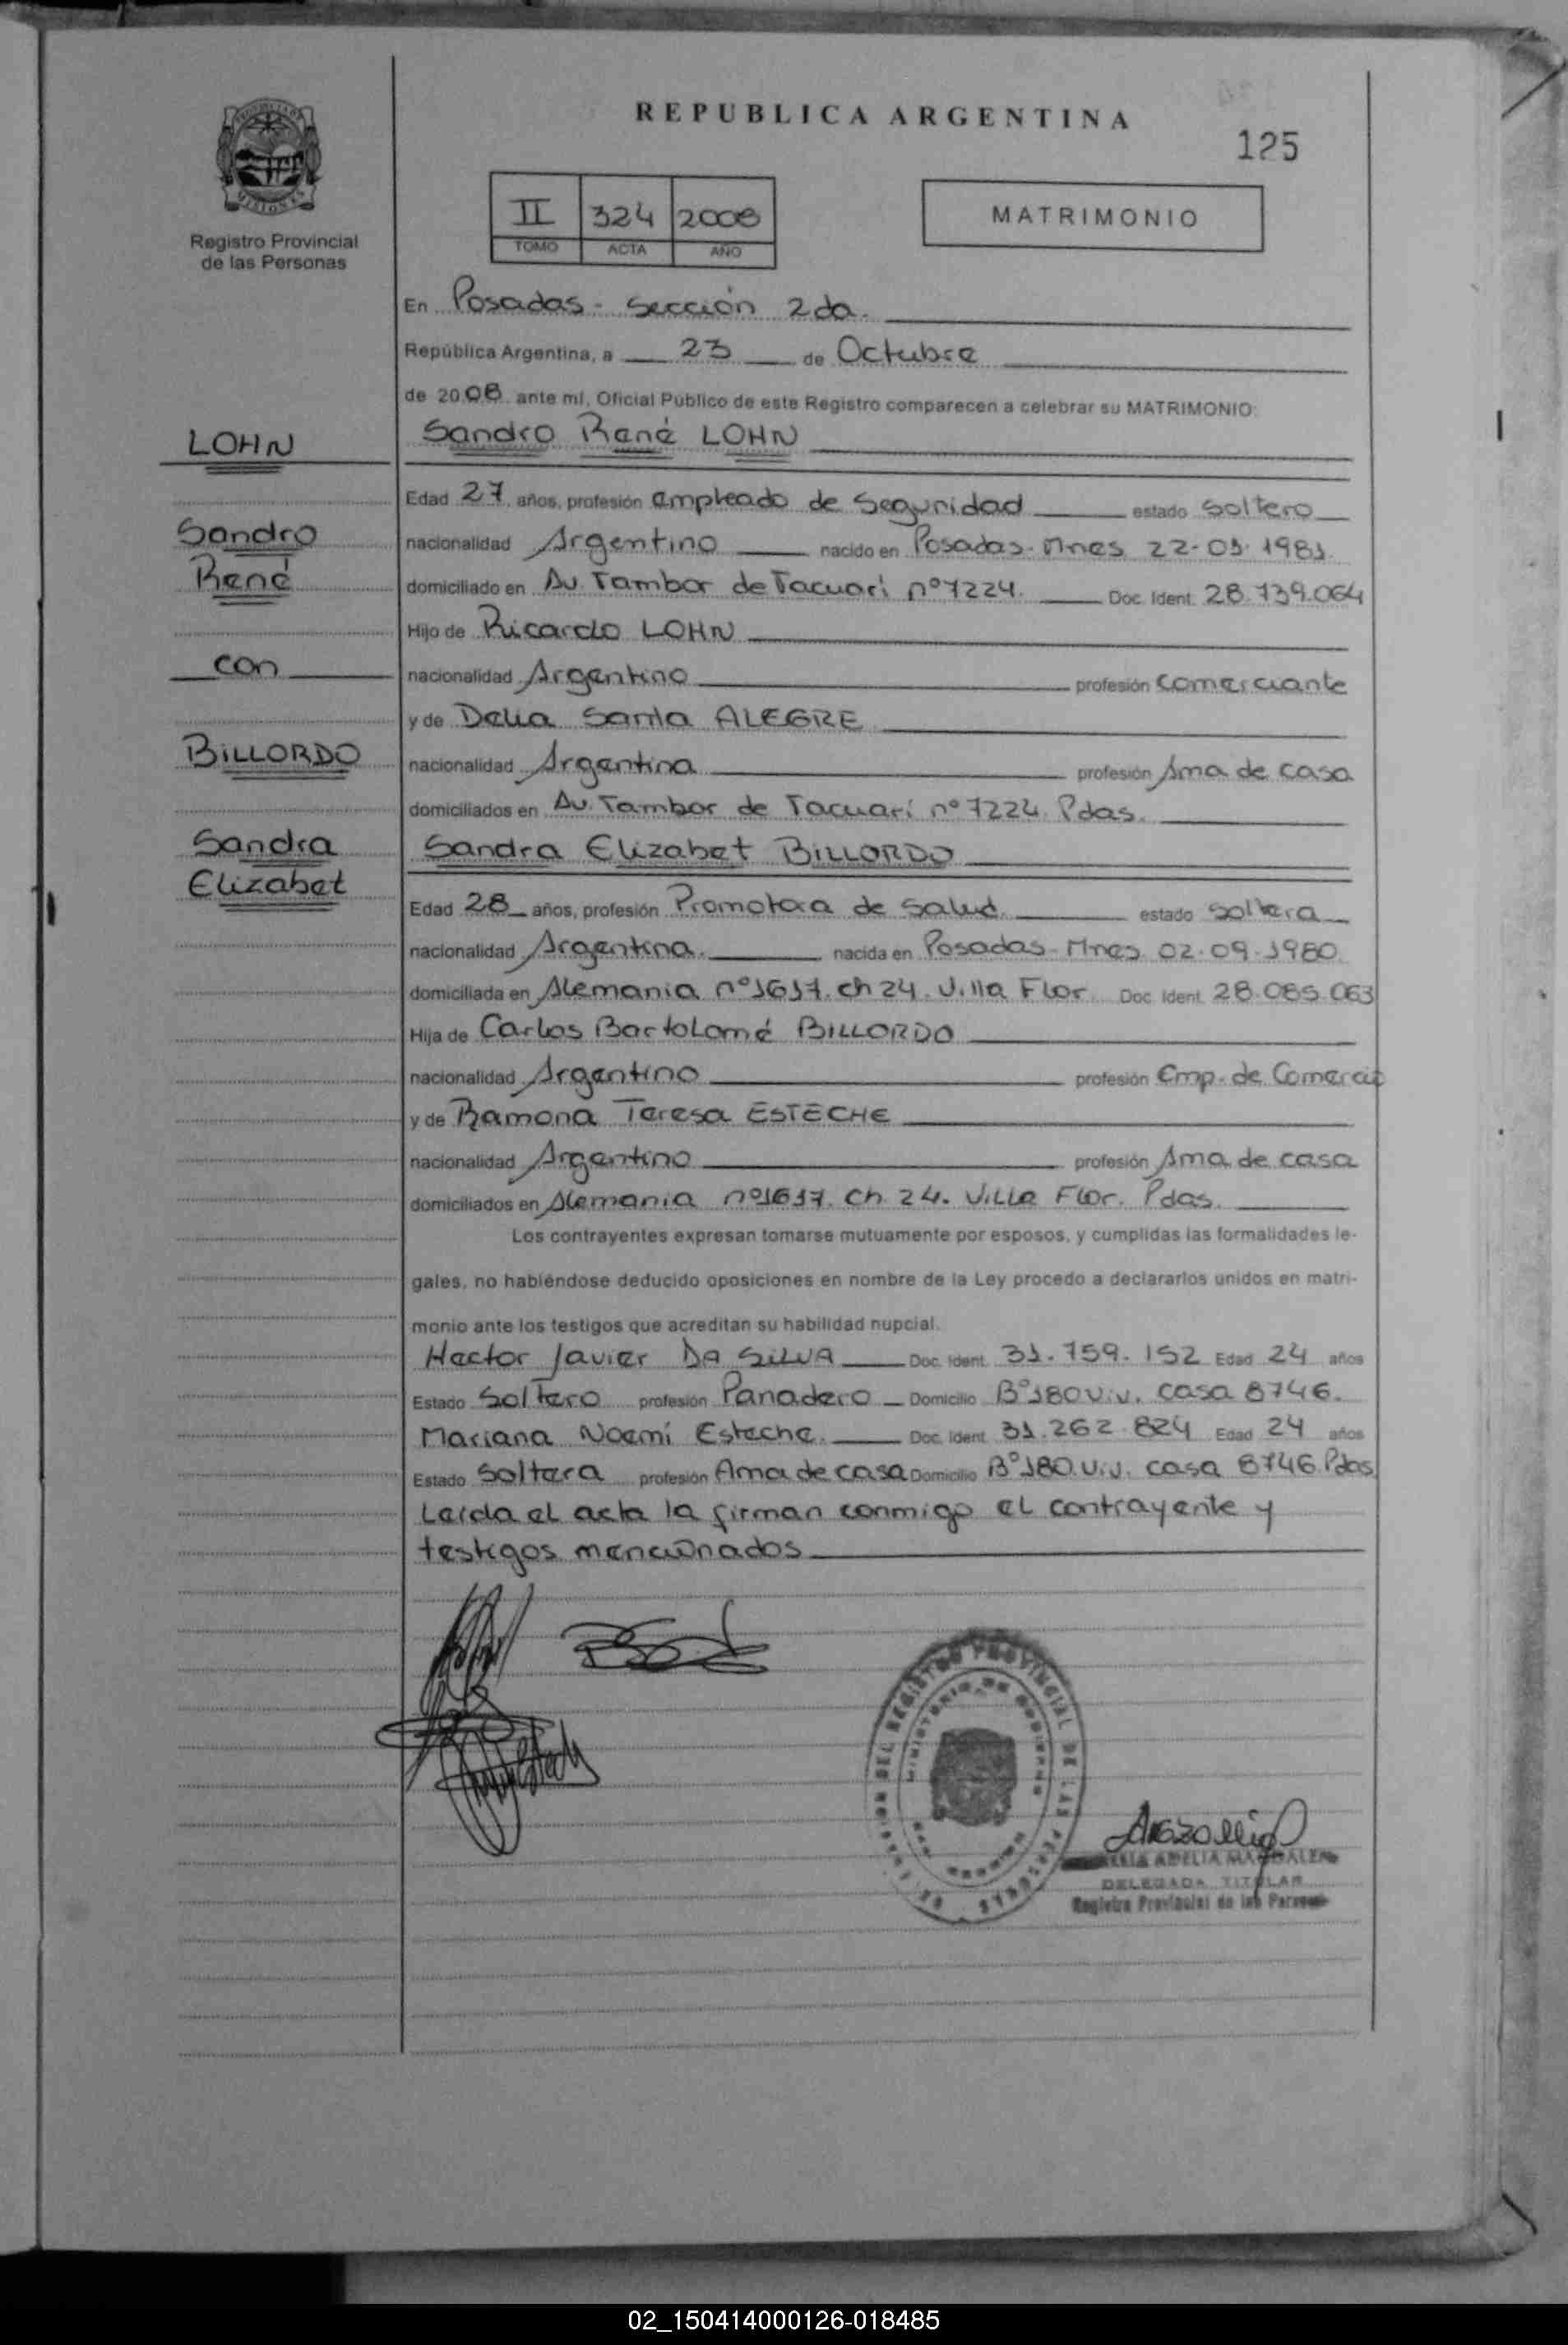 REPUBLICA ARGENTINA
125
PROVINCIA DE MISIONES
Registro Provincial
de las Personas
II 324 2008
TOMO ACTA AÑO
MATRIMONIO
En Posadas - Sección 2da.
República Argentina, a 23 de Octubre
de 2008 ante mí, Oficial Público de este Registro comparecen a celebrar su MATRIMONIO:
Sandro René LOHN
LOHN
Edad 27 años, profesión empleado de Seguridad estado Soltero
Sandro
nacionalidad Argentino nacido en Posadas-Mnes 22-03-1981
René
domiciliado en Av. Tambor de Tacuarí nº 7224. Doc. Ident. 28.739.064
Hijo de Ricardo LOHN
con
nacionalidad Argentino profesión Comerciante
y de Delia ALEGRE
BILLORDO
nacionalidad Argentina profesión Ama de casa
domiciliados en Av. Tambor de Tacuarí nº 7224. Pdas.
Sandra
Sandra Elizabet BILLORDO
Elizabet
Edad 28 años, profesión Promotora de Salud. estado Soltera
nacionalidad Argentina. nacida en Posadas-Mnes 02-09-1980
domiciliada en Alemania nº 1617. ch 24. Villa Flor. Doc. Ident. 28.085.063
Hija de Carlos Bartolomé BILLORDO
nacionalidad Argentino profesión Emp. de Comercio
y de Ramona Teresa ESTECHE
nacionalidad Argentino profesión Ama de casa
domiciliados en Alemania nº 1617. Ch 24. Villa Flor. Pdas.
Los contrayentes expresan tomarse mutuamente por esposos, y cumplidas las formalidades le-
gales, no habiéndose deducido oposiciones en nombre de la Ley procedo a declararlos unidos en matri-
monio ante los testigos que acreditan su habilidad nupcial.
Hector Javier DA SILVA Doc. Ident. 31.759.152 Edad 24 años
Estado Soltero profesión Panadero Domicilio Bº 180 Viv. Casa 8746.
Mariana Noemí Esteche. Doc. Ident. 31.262.824 Edad 24 años
Estado Soltera profesión Ama de casa Domicilio Bº 180 Viv. casa 8746. Pdas
Leída el acta la firman conmigo el contrayente y
testigos mencionados
DEL REGISTRO PROVINCIAL DE LAS PERSONAS
MINISTERIO DE GOBIERNO
ADELIA MAGDALENA
DELEGADA TITULAR
Registro Provincial de las Personas
02_150414000126-018485